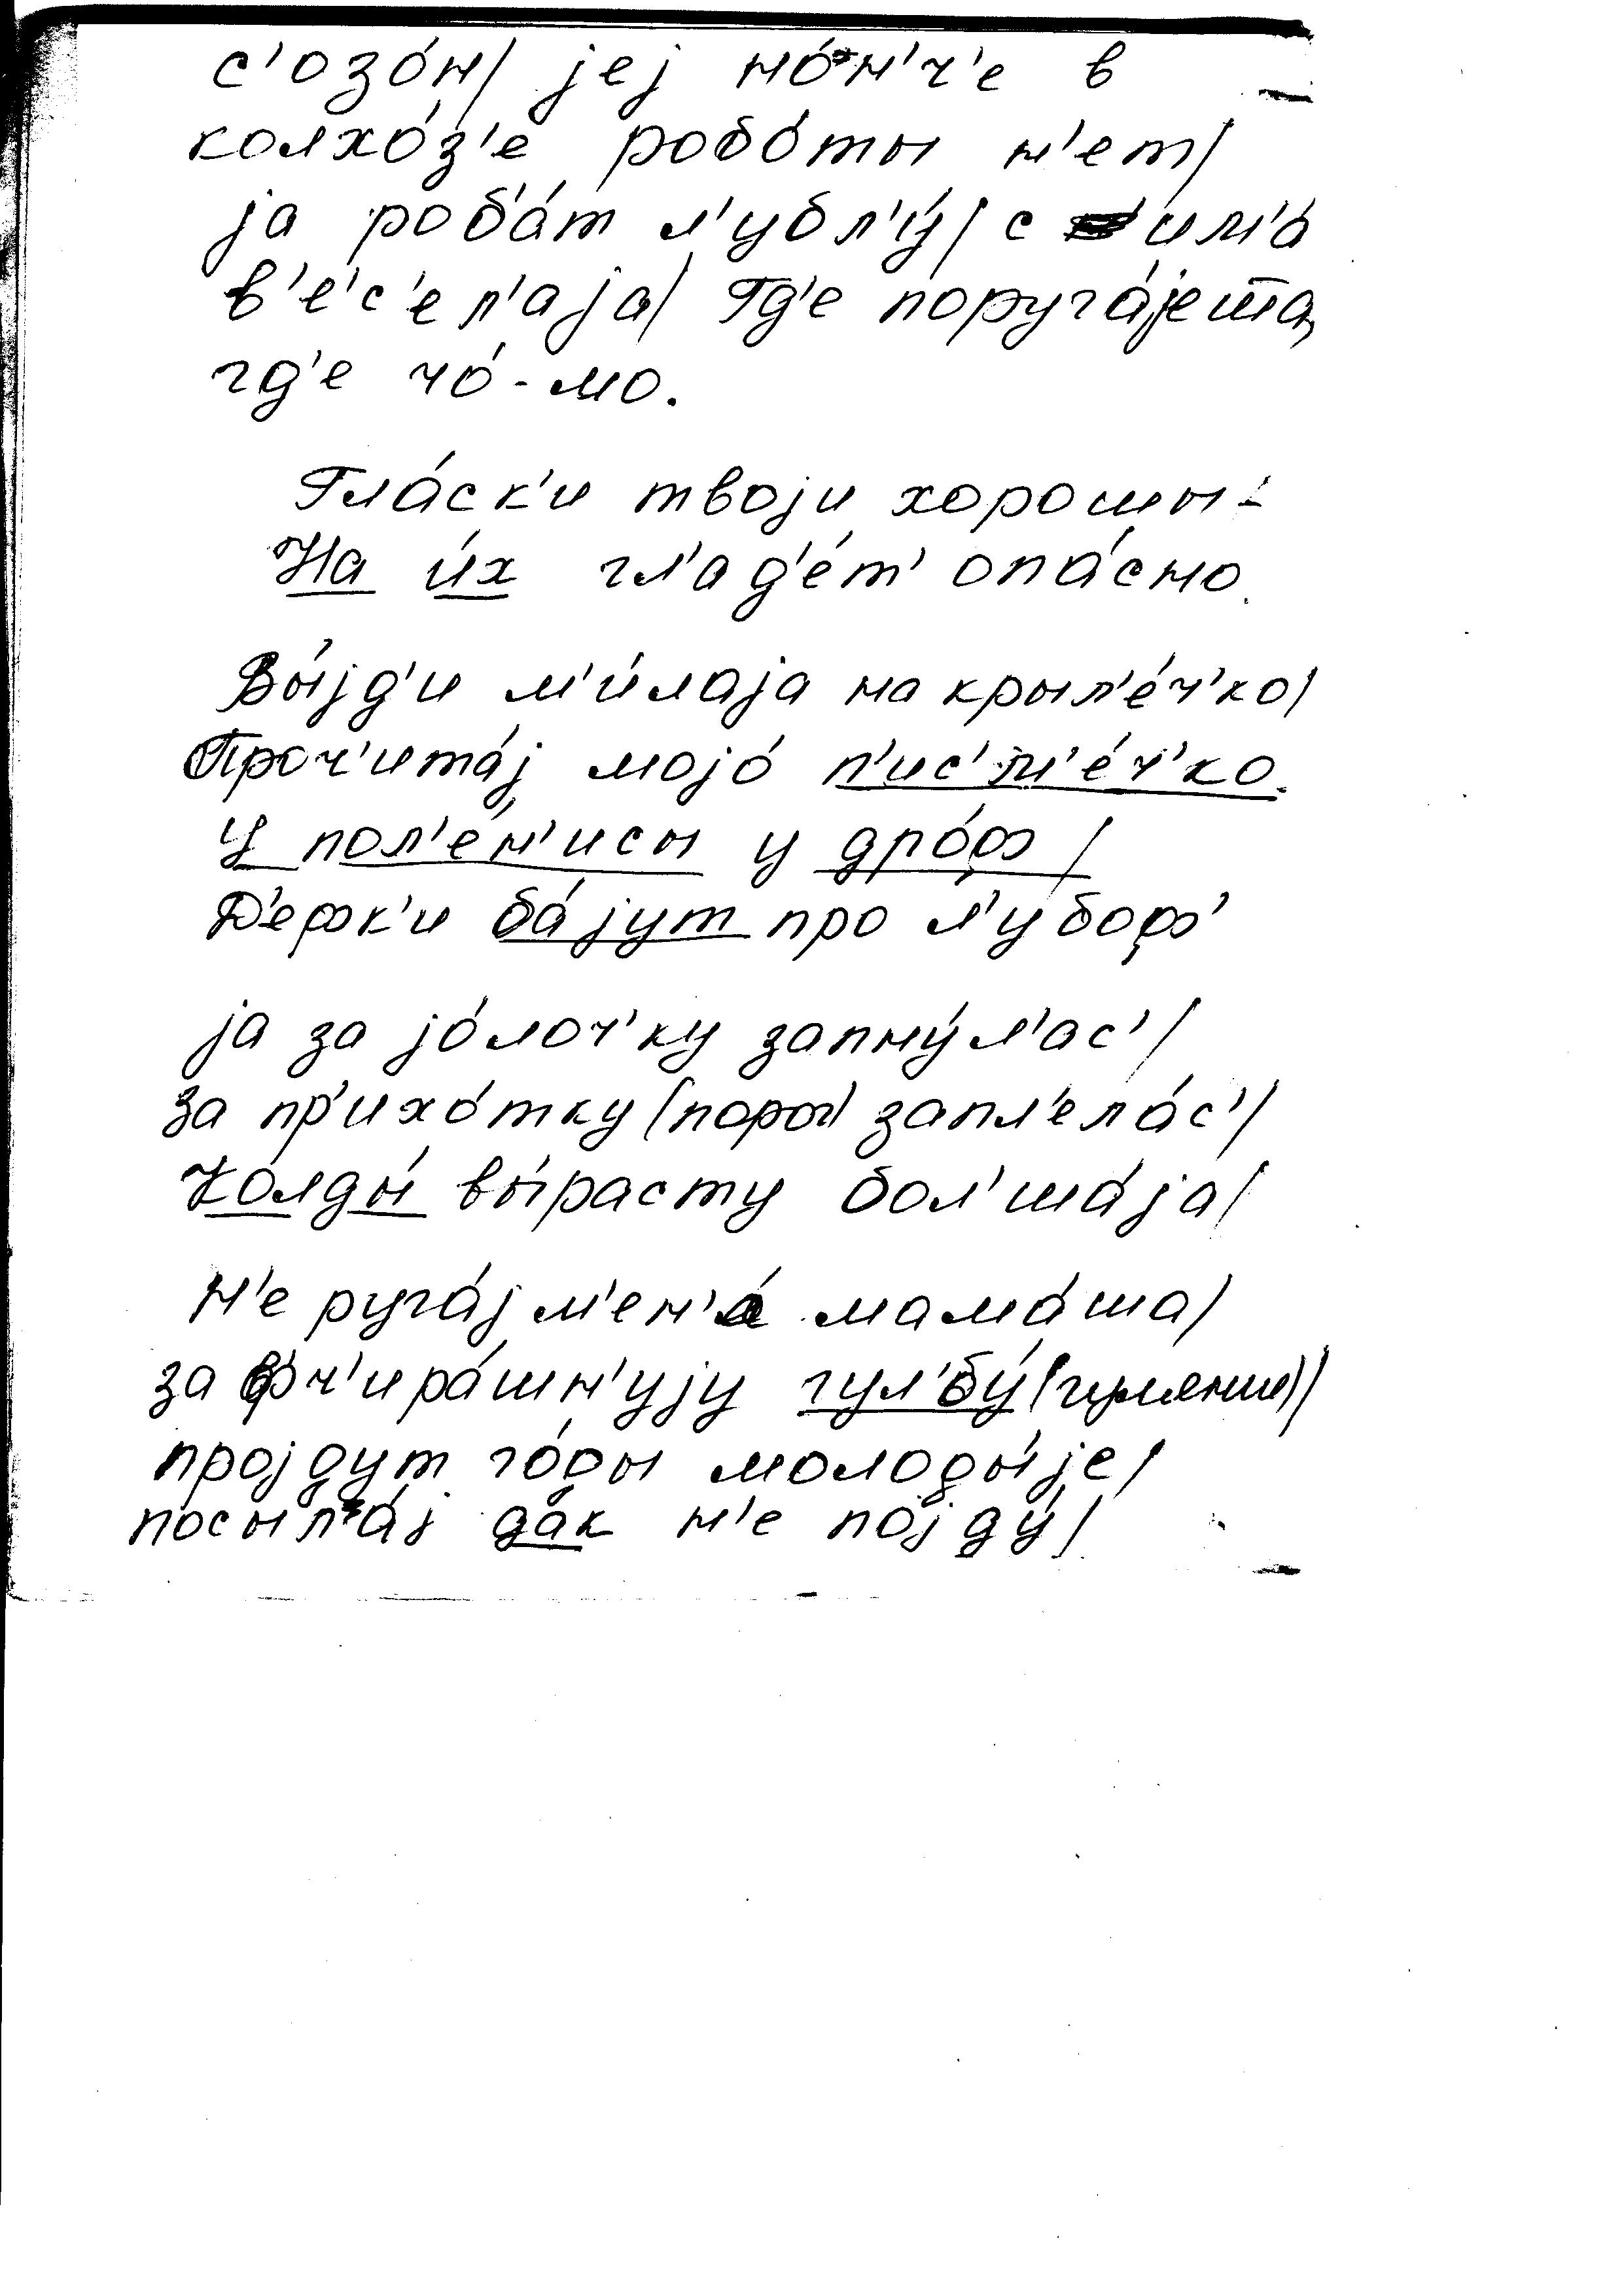 с'озо́н/ jеj но́н'ч'е в
колхо́з'е робо́ты н'ет/
jа роб'а́т л'убл'у́/ с им'а́
в'е́с'ел'аjа/ Гд'е поруга́jетца,
гд'е чо́-то.
Гла́ск'и твоjи хорошы -
На и́х гл'ад'е́т' опа́сно.
Вы́jд'и м'и́лаjа на крыл'е́ч'ко/
Проч'ита́j моjо́ п'ис'м'е́ч'ко.
У пол'е́н'исы у дро́ф /
Д'ефк'и ба́jут про л'убоф'
jа за jо́лоч'ку запну́л'ас' /
за пр'ихо́тку (порог) запл'ела́с'/
Колды́ вы́расту бол'ша́jа/
Н'е руга́j м'ен'а́ мама́ша/
за фч'ира́шн'уjу гул'бу́ (гуляние)/
проjдут го́ды молоды́jе/
посыла́j да́к н'е поjду́/